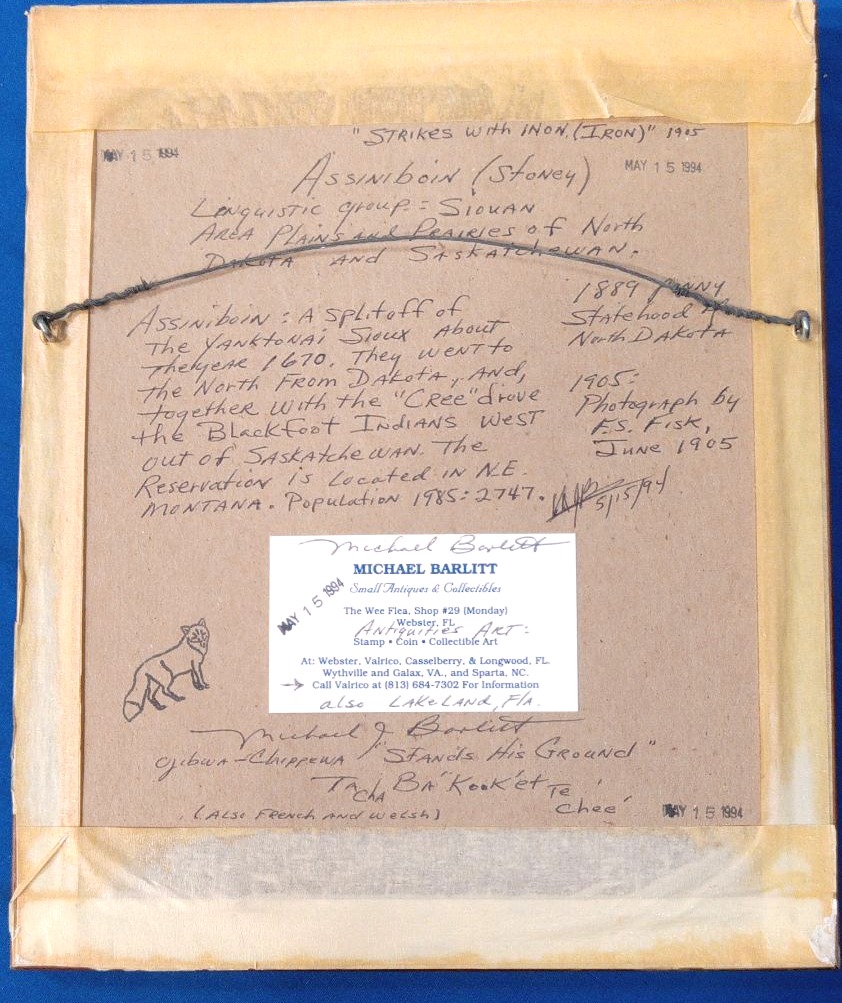 "STRIKES WITH INON, (IRON)" 1905
MAY 15 1994
MAY 15 1994
ASSINIBOIN (Stoney)
Linguistic group = SIOUAN
AREA PLAINS and PRAIRIES of North
DAKOTA AND SASKATCHEWAN.
1889 PENNY
Statehood
North DAKOTA
ASSINIBOIN: A splitoff of
The YANKTONAI SIOUX About
The year 1670. They WENT to
the North FROM DAKOTA, AND,
together with the "CREE" drove
the Blackfoot INDIANS WEST
out of SASKATCHEWAN. The
Reservation is Located IN N.E.
MONTANA. Population 1985: 2747.
1905:
Photograph by
F.S. FISK,
June 1905
5/15/94
Michael Barlitt
MICHAEL BARLITT
Small Antiques & Collectibles
MAY 15 1994
The Wee Flea, Shop #29 (Monday)
Webster, FL
ANTIQUITIES ART:
Stamp • Coin • Collectible Art
At: Webster, Valrico, Casselberry, & Longwood, FL.
Wytheville and Galax, VA., and Sparta, NC.
→ Call Valrico at (813) 684-7302 For Information
also LAKELAND, FLA.
Michael J Barlitt
Ojibwa-Chippewa "STANDS HIS GROUND"
TA CHA BA' KOOK'et Te' Chee'
(ALSO FRENCH AND WELSH)
MAY 15 1994